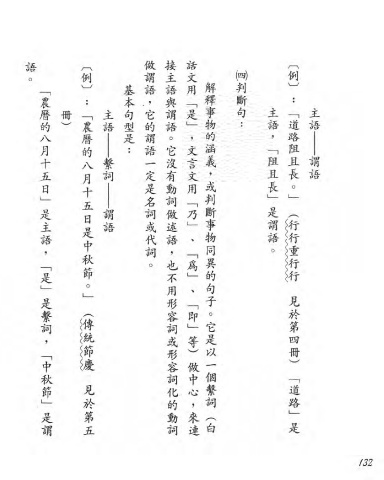 主語——謂語
〔例〕：「道路阻且長。」（行行重行行　見於第四冊）「道路」是
主語，「阻且長」是謂語。
㈣判斷句：
解釋事物的涵義，或判斷事物同異的句子。它是以一個繫詞（白
話文用「是」，文言文用「乃」、「為」、「即」等）做中心，來連
接主語與謂語。它沒有動詞做述語，也不用形容詞或形容詞化的動詞
做謂語，它的謂語一定是名詞或代詞。
基本句型是：
主語——繫詞——謂語
〔例〕：「農曆的八月十五日是中秋節。」（傳統節慶　見於第五
冊）
「農曆的八月十五日」是主語，「是」是繫詞，「中秋節」是謂
語。
132